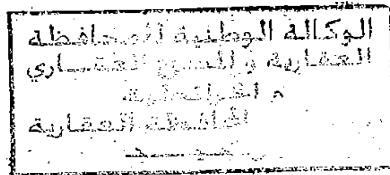 الوكالة الوطنية للمحافظة
العقارية والمسح العقاري
و الخرائطية
المحافظة العقارية